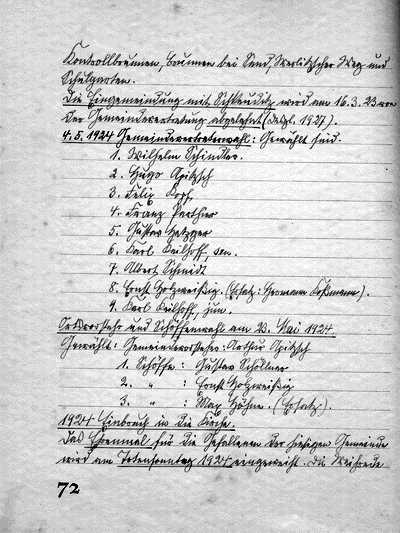 Kontrollbrunnen, Brunnen bei Sand, Werlitzscher Weg und
Schulgarten.
Die Eingemeindung mit Schkeuditz wird am 16.3.23 von
der Gemeindevertretung abgelehnt (desgl. 1927).
4.5.1924 Gemeindevertreterwahl: Gewählt sind.
1. Wilhelm Schindler.
2. Hugo Apitzsch
3. Felix Kopf.
4. Franz Parthier
5. Gustav Hetzger
6. Karl Keilhoff, sen.
7. Albert Schmidt
8. Ernst Holzweißig. (Ersatz: Hermann Koßmann).
9. Karl Keilhoff, jun.
Ortsvorsteher und Schöffenwahl am 23. Mai 1924
Gewählt: Gemeindevorsteher: Arthur Apitzsch
1. Schöffe: Gustav Schöllner
2. " : Ernst Holzweißig
3. " : Max Höhne. (Ersatz.).
1924 Einbruch in die Kirche.
Das Ehrenmal für die Gefallenen der hiesigen Gemeinde
wird am Totensonntag 1924 eingeweiht. Die Weihrede
72